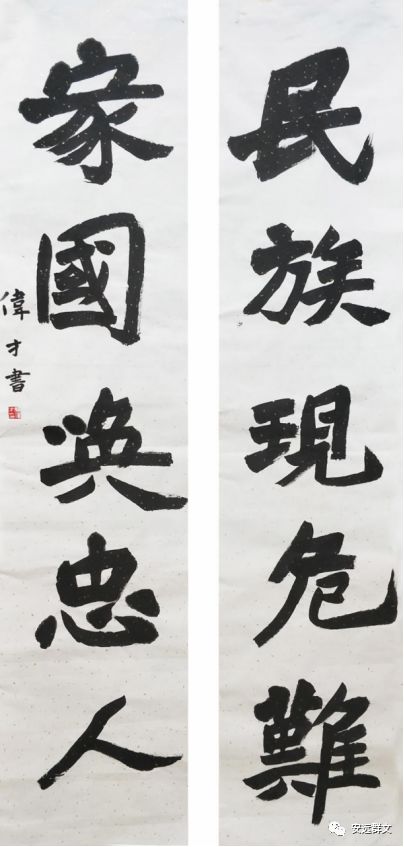 民族現危難
家國喚忠人
偉才書
安远群文